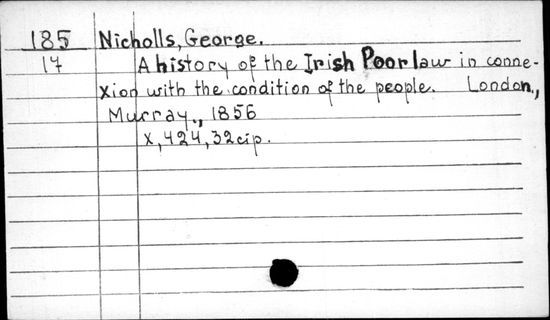 185 Nicholls, George.
17 A history of the Irish Poor law in conne-
xion with the condition of the people. London.,
Murray., 1856
X, 424, 32cip.